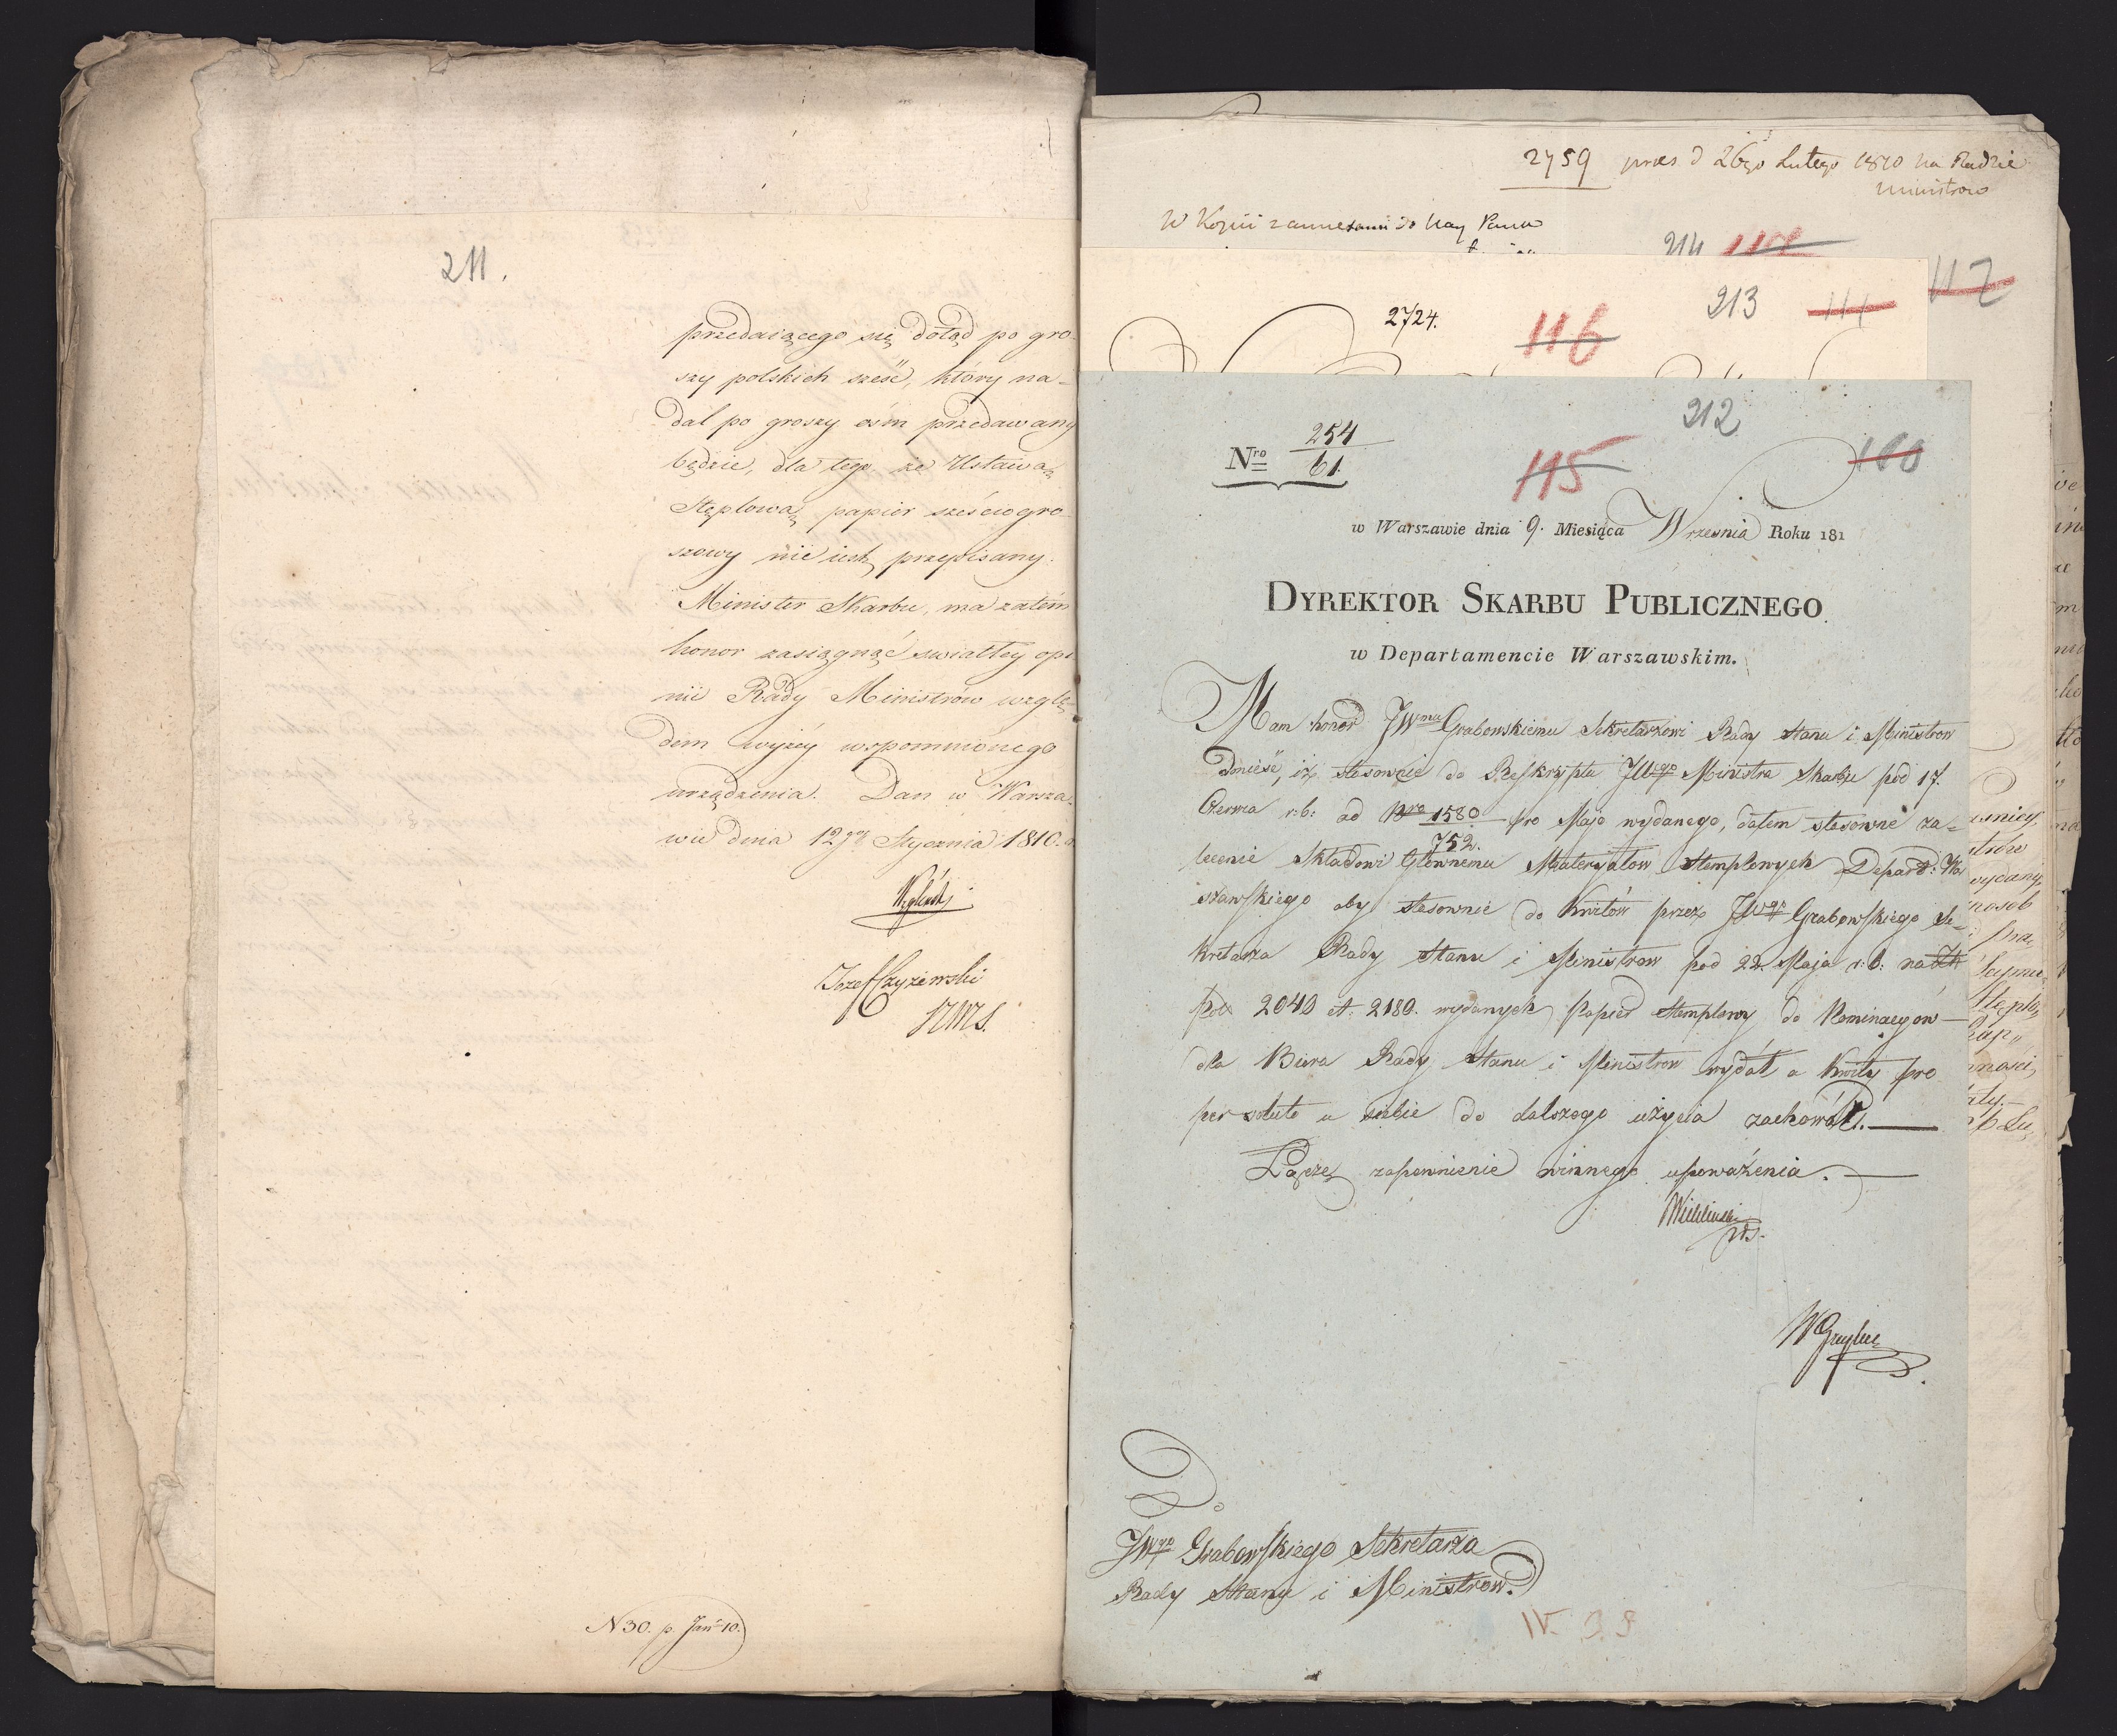 211.
przedaiącego się dotąd po gro-
szy polskich sześć, który na-
dal po groszy ośm przedawany
będzie, dla tego, że Ustawą
Stęplową papier sześciogro-
szowy nie iest przepisany.
Minister Skarbu, ma zatém
honor zasiągnąć swiatłey opi
nii Rady Ministrów wzglę-
dem wyżéy wspomnionego
urządzenia. Dan w Warsza-
wie dnia 12go Stycznia 1810.
Węgleński
Jozef Czyżewski
N 30. p. Jan: 10.
2759 praes d 26go Lutego 1810 na Radzie
Ministrow
W Kopii zaniesiona do Nay Pana
214
112
2724.
116
213
111
212
Nro 254
61.
115
160
w Warszawie dnia 9. Miesiąca Wrzesnia Roku 181
DYREKTOR SKARBU PUBLICZNEGO
w Departamencie Warszawskim.
Mam honor JWmu Grabowskiemu Sekretarzowi Rady Stanu i Ministrow
donieść, iż stosownie do Reskryptu JWgo Ministra Skarbu pod 17.
Czerwca r: b: ad Nro 1580 pro Majo wydanego, dałem stosowne za-
752.
lecenie Składowi Głównemu Materyałow Stemplowych Depart: War
szawskiego aby stosownie do Kwitów przez JWgo Grabowskiego Se-
kretarza Rady Stanu i Ministrow pod 22. Maja r: b: na
2040 et 2180. wydanych Papier Stemplowy do
dla Biura Rady Stanu i Ministrow wydał a Kwity pro
persoluto u siebie do dalszego użycia zachował.
Łączę zapewnienie winnego upoważenia.
Do
JWgo Grabowskiego Sekretarza
Rady Stanu i Ministrow.